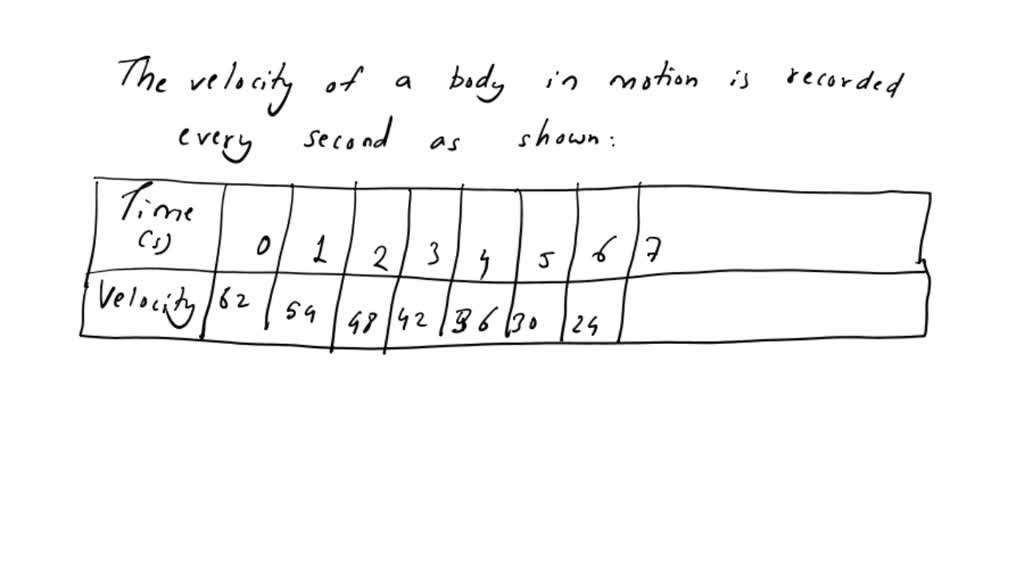 The velocity of a body in motion is recorded
every second as shown:
Time (s) 0 1 2 3 4 5 6 7
Velocity 62 54 48 42 36 30 24